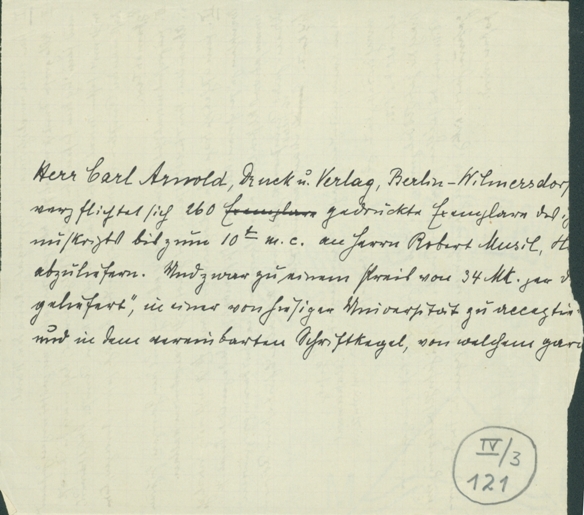 Herr Carl Arnold, Druck u. Verlag, Berlin-Wilmersdorf
verpflichtet sich 260 Exemplare gedruckte Exemplare des
nuskripts bis zum 10t m. c. an Herrn Robert Musil,
abzuliefern. Und zwar zu einem Preis von 34 Mk. per
geliefert", in einer von hiesiger Universität zu
und in dem vereinbarten Schriftkegel, von welchem
IV/3
121